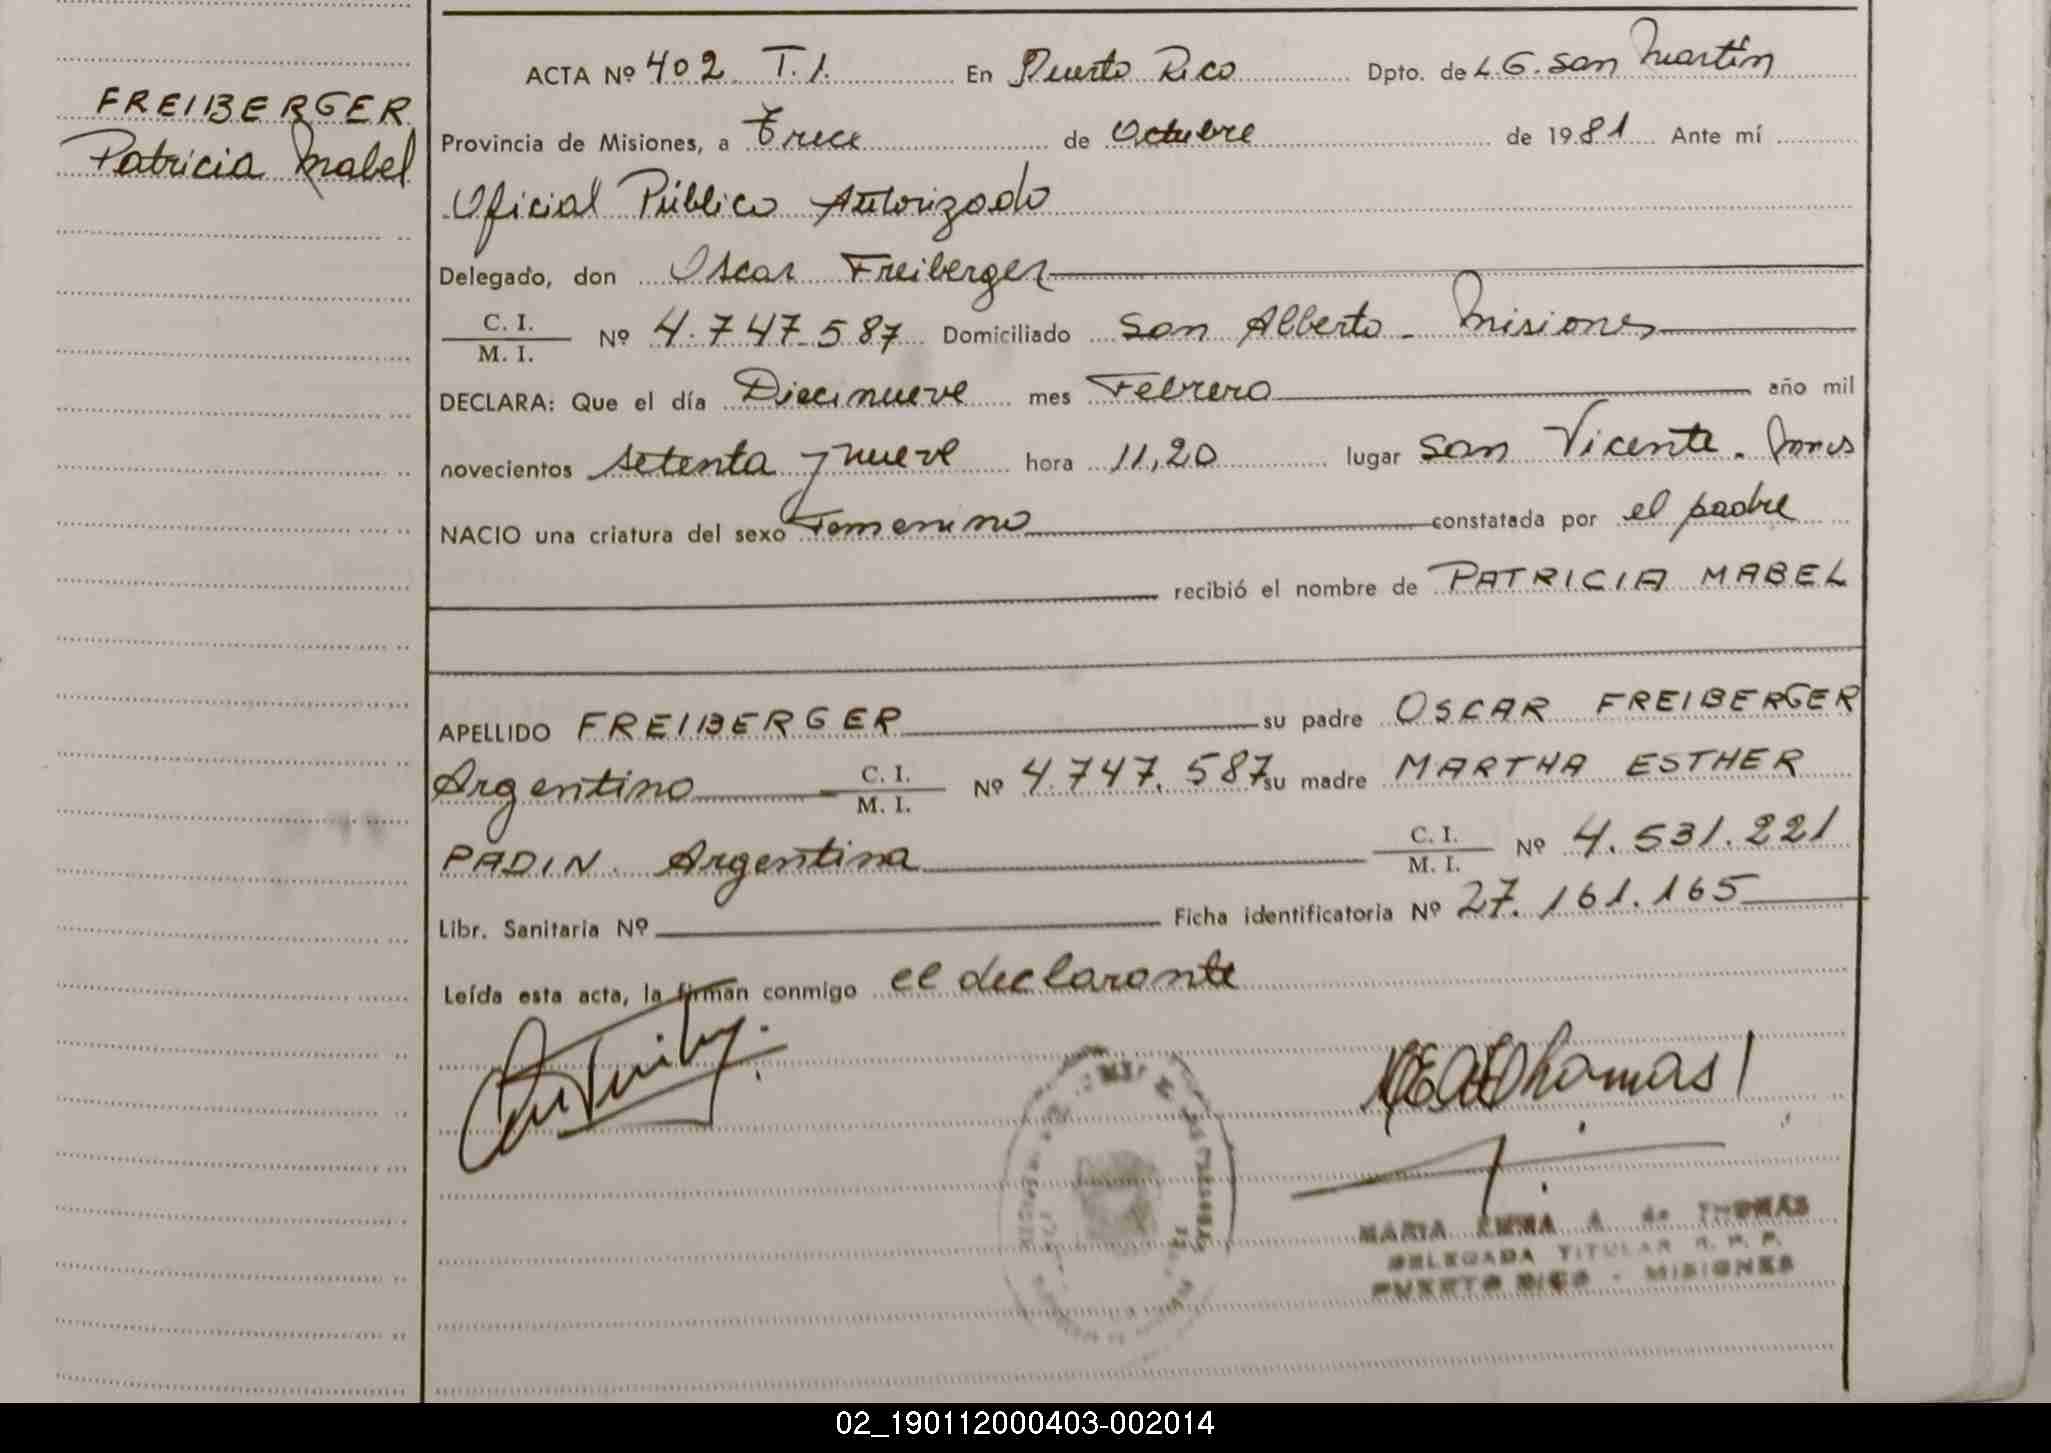 FREIBERGER
Patricia Mabel
ACTA Nº 402 T.1. En Puerto Rico Dpto. de L.G. San Martín
Provincia de Misiones, a Trece de Octubre de 1981 Ante mí
Oficial Público Autorizado
Delegado, don Oscar Freiberger
C. I.
M. I. Nº 4.747.587 Domiciliado San Alberto - Misiones
DECLARA: Que el día Diecinueve mes Febrero año mil
novecientos setenta y nueve hora 11,20 lugar San Vicente. Mnes
NACIO una criatura del sexo Femenino constatada por el padre
recibió el nombre de PATRICIA MABEL
APELLIDO FREIBERGER su padre OSCAR FREIBERGER
Argentino C. I. M. I. Nº 4.747.587 su madre MARTHA ESTHER
PADIN. Argentina C. I. M. I. Nº 4.531.221
Libr. Sanitaria Nº Ficha identificatoria Nº 27.161.165
Leída esta acta, la firman conmigo el declarante
MARIA EMMA A. de THOMAS
DELEGADA TITULAR R. P. P.
PUERTO RICO - MISIONES
02_190112000403-002014